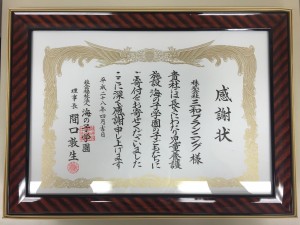 感謝状
株式会社 三和プランニング 様
貴社は長きにわたり児童養護
施設 海の子学園の子どもたちに
ご寄付をお寄せくださいました
ここに深く感謝申し上げます
平成二十八年四月吉日
社会福祉法人 海の子学園
理事長 関口敦生